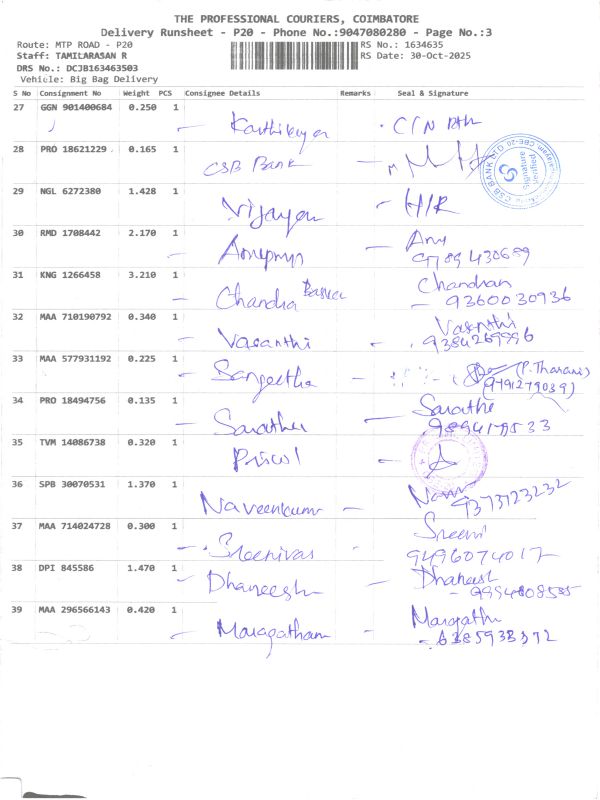 THE PROFESSIONAL COURIERS, COIMBATORE
Delivery Runsheet - P20 - Phone No.:9047080280 - Page No.:3
Route: MTP ROAD - P20 RS No.: 1634635
Staff: TAMILARASAN R RS Date: 30-Oct-2025
DRS No.: DCJB163463503
Vehicle: Big Bag Delivery
S No Consignment No Weight PCS Consignee Details Remarks Seal & Signature
27 GGN 901400684 0.250 1 Karthikeyan
28 PRO 18621229 0.165 1 CSB Bank
29 NGL 6272380 1.428 1 Vijayan H/R
30 RMD 1708442 2.170 1 Any
31 KNG 1266458 3.210 1 Chandra Chandran
9360030936
32 MAA 710190792 0.340 1 Vasanthi Vasanthi
9384269996
33 MAA 577931192 0.225 1 Sangeetha (P.Tharani)
(9791279039)
34 PRO 18494756 0.135 1 Sarathi Sarathi
35 TVM 14086738 0.320 1
36 SPB 30070531 1.370 1 Naveenkumar
9373123232
37 MAA 714024728 0.300 1 Sreenivas
9496074017
38 DPI 845586 1.470 1 Dhaneesh Dhaneesh
39 MAA 296566143 0.420 1 Maragatham